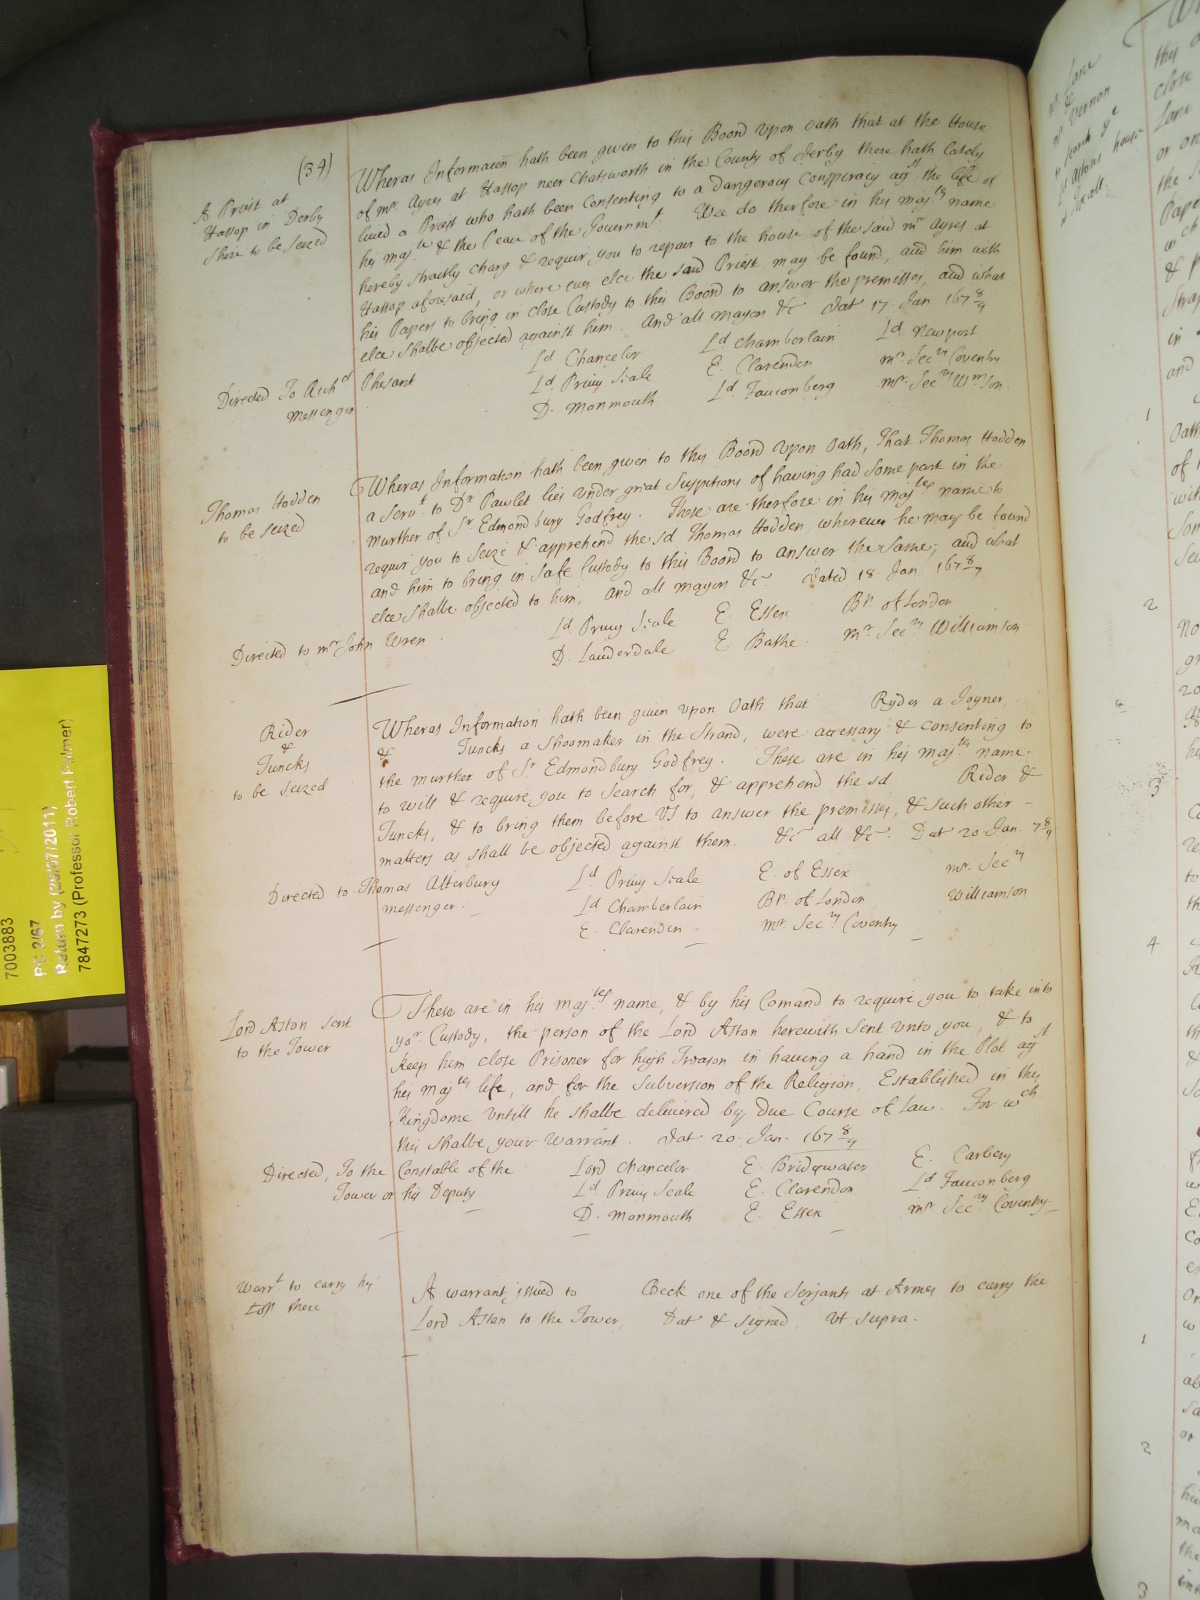 (34)
A Preist at
Hassop in Derby
shire to be seized
Wheras Informacon hath been given to this Board upon Oath that at the House
of mr. Ayres at Hassop neer Chatsworth in the County of Derby there hath lately
lived a Priest who hath been Consenting to a dangerous Conspiracy agst the life of
his majte & the Peace of the Governmt Wee do therfore in his majts name
hereby straitly charg & requir you to repair to the house of the said mr Ayres at
Hassop aforesaid, or where ever else the said Priest may be found, and him with
his Papers to bring in close Custody to this Board to answer the premisses, and what
else shalbe objected against him. And all mayors &c Dat 17 Jan 1678/9
Directed To Richd Phesant
messenger
Ld Chancelor Ld Chamberlain Ld Newport
Ld Privy Seale E. Clarendon mr. Secry Coventry
D. Monmouth Ld Fauconberg mr. Secry Wmson
Thomas Hodden
to be seized
Wheras Information hath been given to this Board upon Oath, That Thomas Hodden
a Servt to Dr Pawlet lies under great Suspitions of having had some part in the
murther of Sr Edmondbury Godfrey. These are therfore in his majties name to
requir you to Seize & apprehend the sd Thomas Hodden, wherever he may be found
and him to bring in safe Custody to this Board to answer the same, and what
else shalbe objected to him, And all mayors &c Dated 18 Jan 1678/9
Directed to mr John Wren
Ld Privy Seale E. Essex Bp. of London
D. Lauderdale E. Bathe mr. Secry Williamson
Rider
&
Tuncks
to be seized
Wheras Information hath been given upon Oath that Ryder a Joyner
& Tuncks a Shoomaker in the Strand, were accessary & Consenting to
the murther of Sr Edmondbury Godfrey. These are in his majtes name
to will & require you to Search for, & apprehend the sd Rider &
Tuncks, & to bring them before US to answer the premisses, & such other
matters as shall be objected against them. &c all &c. Dat 20 Jan. 78/9
Directed to Thomas Atterbury
messenger
Ld Privy Seale E. of Essex mr. Secry
Ld Chamberlain Bp. of London Williamson
E. Clarendon mr. Secry Coventry
Lord Aston sent
to the Tower
These are in his majties name, & by his Comand to require you to take into
yor Custody, the person of the Lord Aston herewith Sent unto you, & to
keep him close Prisoner for high Treason in having a hand in the Plot agst
his majtes life, and for the Subversion of the Religion Established in this
Kingdome untill he shalbe delivered by due Course of Law. For wch
this shalbe your Warrant. Dat 20 Jan. 1678/9
Directed, To the Constable of the
Tower or his Deputy
Lord Chancelor E. Bridgwater E. Carbery
Ld Privy Seale E. Clarendon Ld Fauconberg
D. Monmouth E. Essex mr. Secry Coventry
Warrt to carry his
Lop there
A warrant issued to Beck one of the Serjants at Armes to carry the
Lord Aston to the Tower, Dat & signed ut supra.
7003883
PC 2/67
Return by (26/07/2011)
7847273 (Professor Robert Palmer)